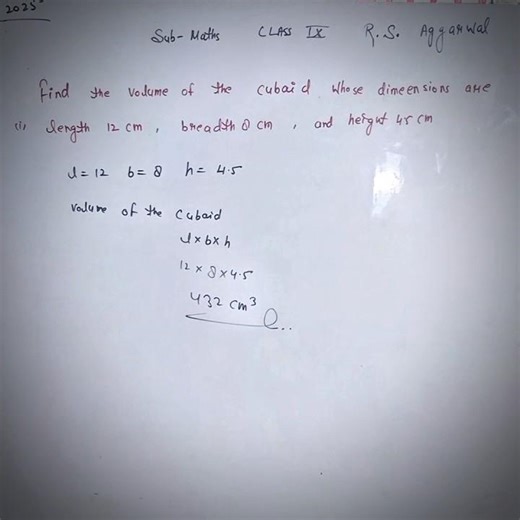 2025
Sub- Maths CLASS IX R.S. Aggarwal
Find the volume of the cubaid whose dimeensions are
(i) length 12 cm, breadth 8 cm, and height 45 cm
l = 12 b = 8 h = 4.5
volume of the cubaid
l × b × h
12 × 8 × 4.5
432 cm³